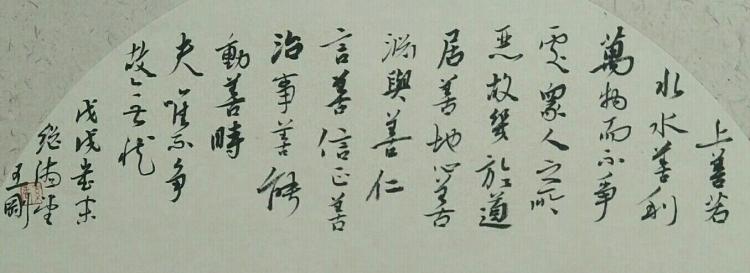 上善若
水水善利
萬物而不爭
處眾人之所
惡故幾於道
居善地心善
淵與善仁
言善信正善
治事善能
動善時
夫唯不爭
故無尤
戊戌歲末
王剛